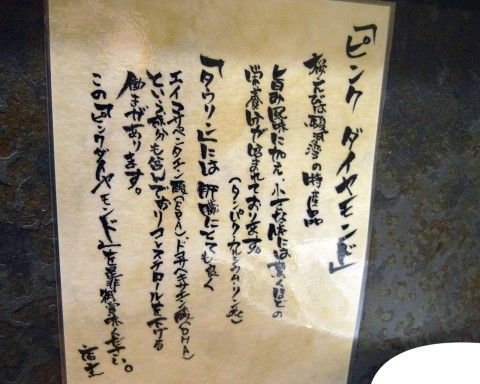 「ピンク ダイヤモンド」
桜えびは駿河湾の特産品
旨み風味に加え、小さな体には驚くほどの
栄養分が含まれております。
（タンパク・カルシウム・リン・鉄）
「タウリン」には肝臓にとても良く
エイコサペンタエン酸（EPA）、ドコサヘキサエン酸（DHA）
という成分も含んでおりコレステロールを下げる
働きがあります。
この「ピンクダイヤモンド」を是非御賞味ください。
店主